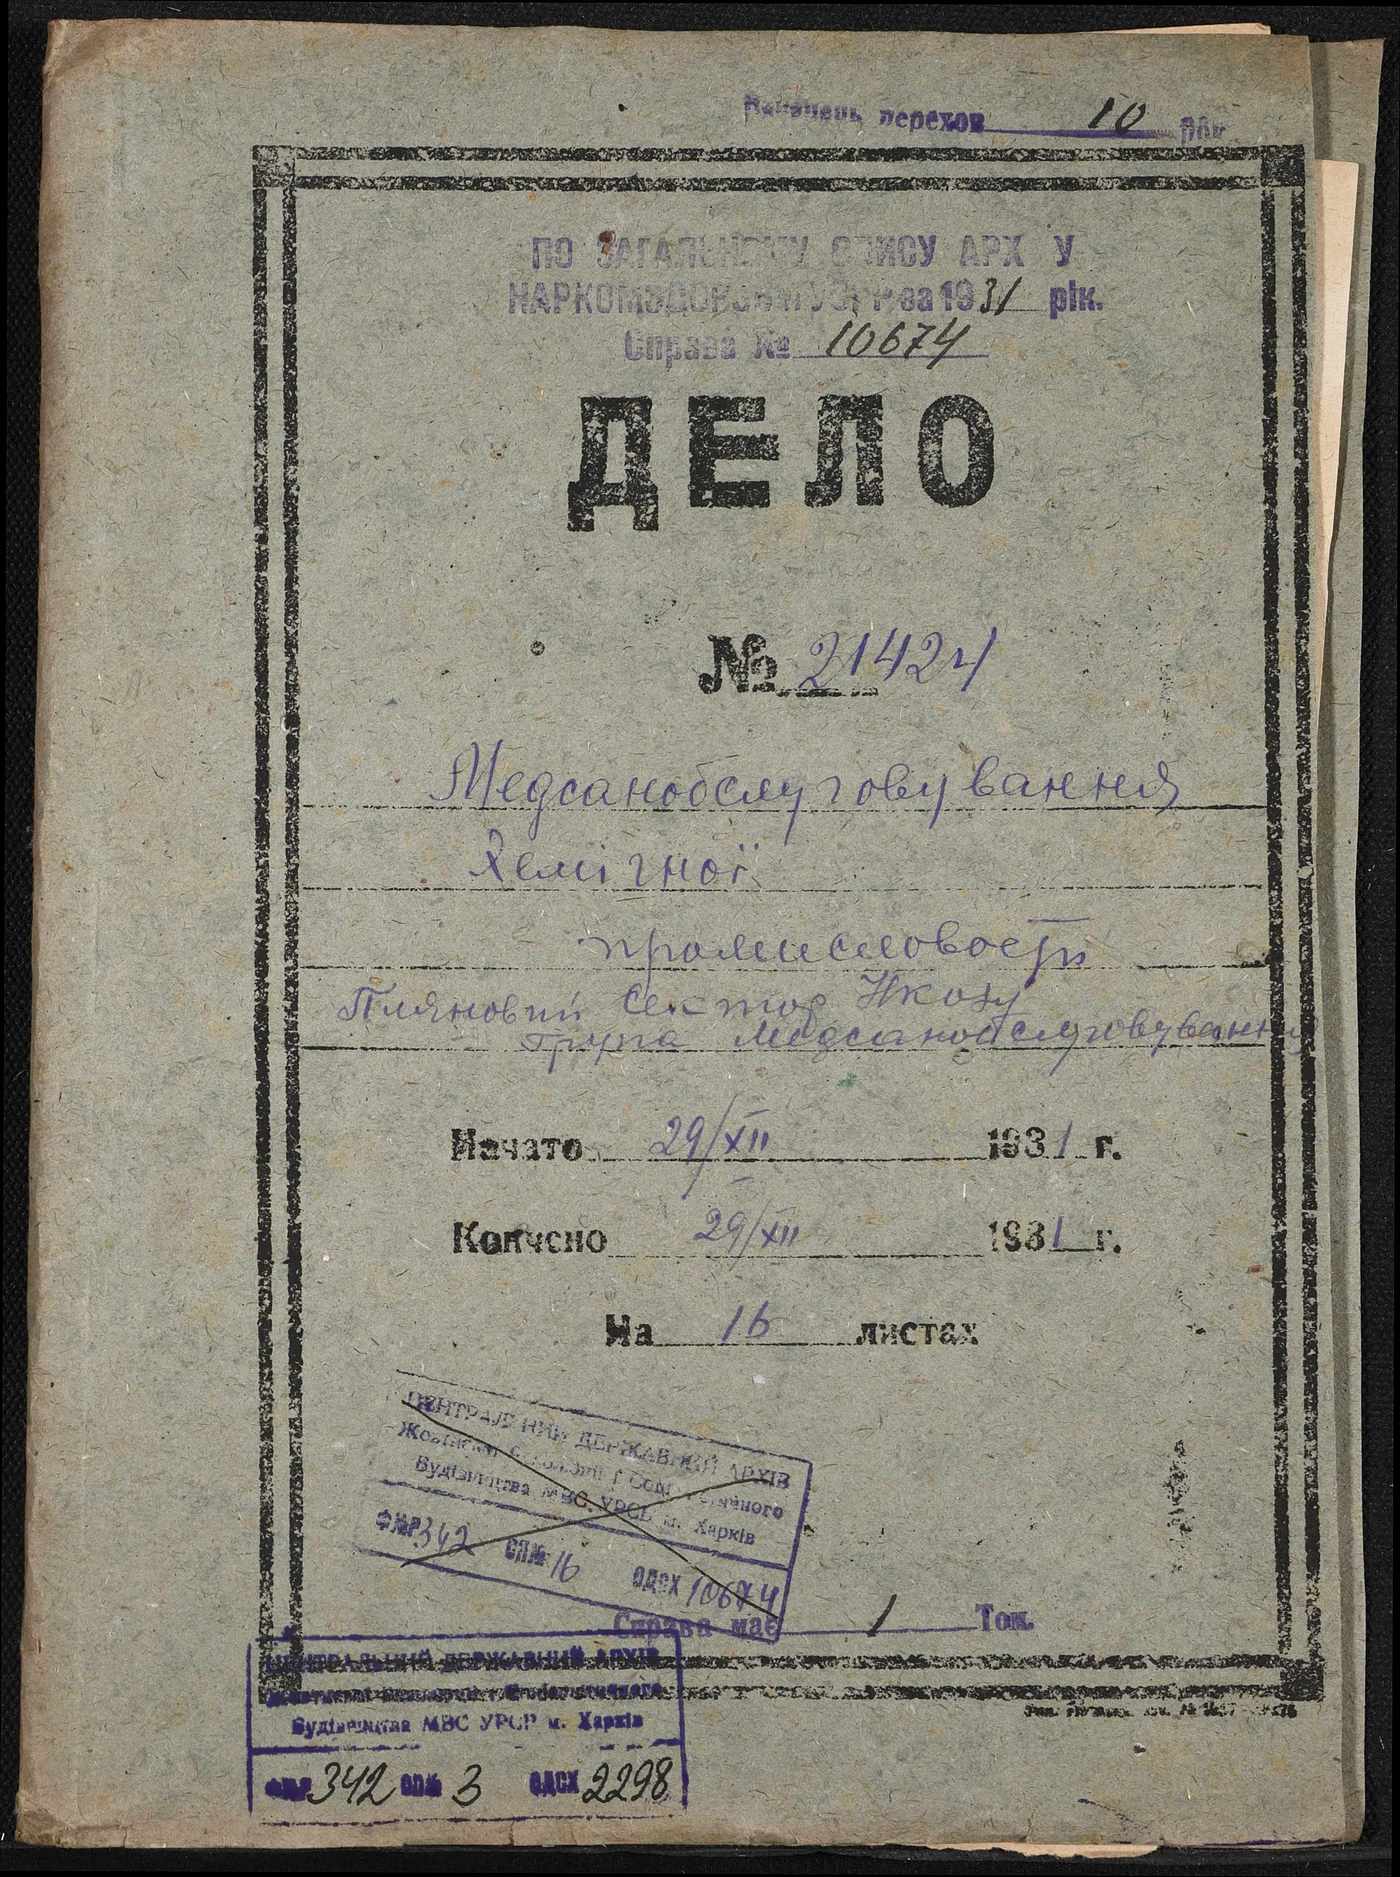 Речинець перехов 10 рок
ПО ЗАГАЛЬНОМУ ОПИСУ АРХ У
НАРКОМЗДОРОВ'Я УСРР за 1931 рік.
Справа № 10674
ДЕЛО
№ 21424
Медсанобслуговування
Хемічної
промисловости
Пляновий Сектор Нкозу
Група Медсанобслуговування
Начато 29/XII 1931 г.
Кончено 29/XII 1931 г.
На 16 листах
ЦЕНТРАЛЬНИЙ ДЕРЖАВНИЙ АРХІВ
Жовтневої революції і Соціалістичного
Будівництва МВС УРСР м. Харків
Ф№Р 342 ОП№ 16 ОДСХ 10674
Справа має 1 Том.
ЦЕНТРАЛЬНИЙ ДЕРЖАВНИЙ АРХІВ
Жовтневої революції і Соціалістичного
Будівництва МВС УРСР м. Харків
Ф№Р 342 ОП№ 3 ОДСХ 2298